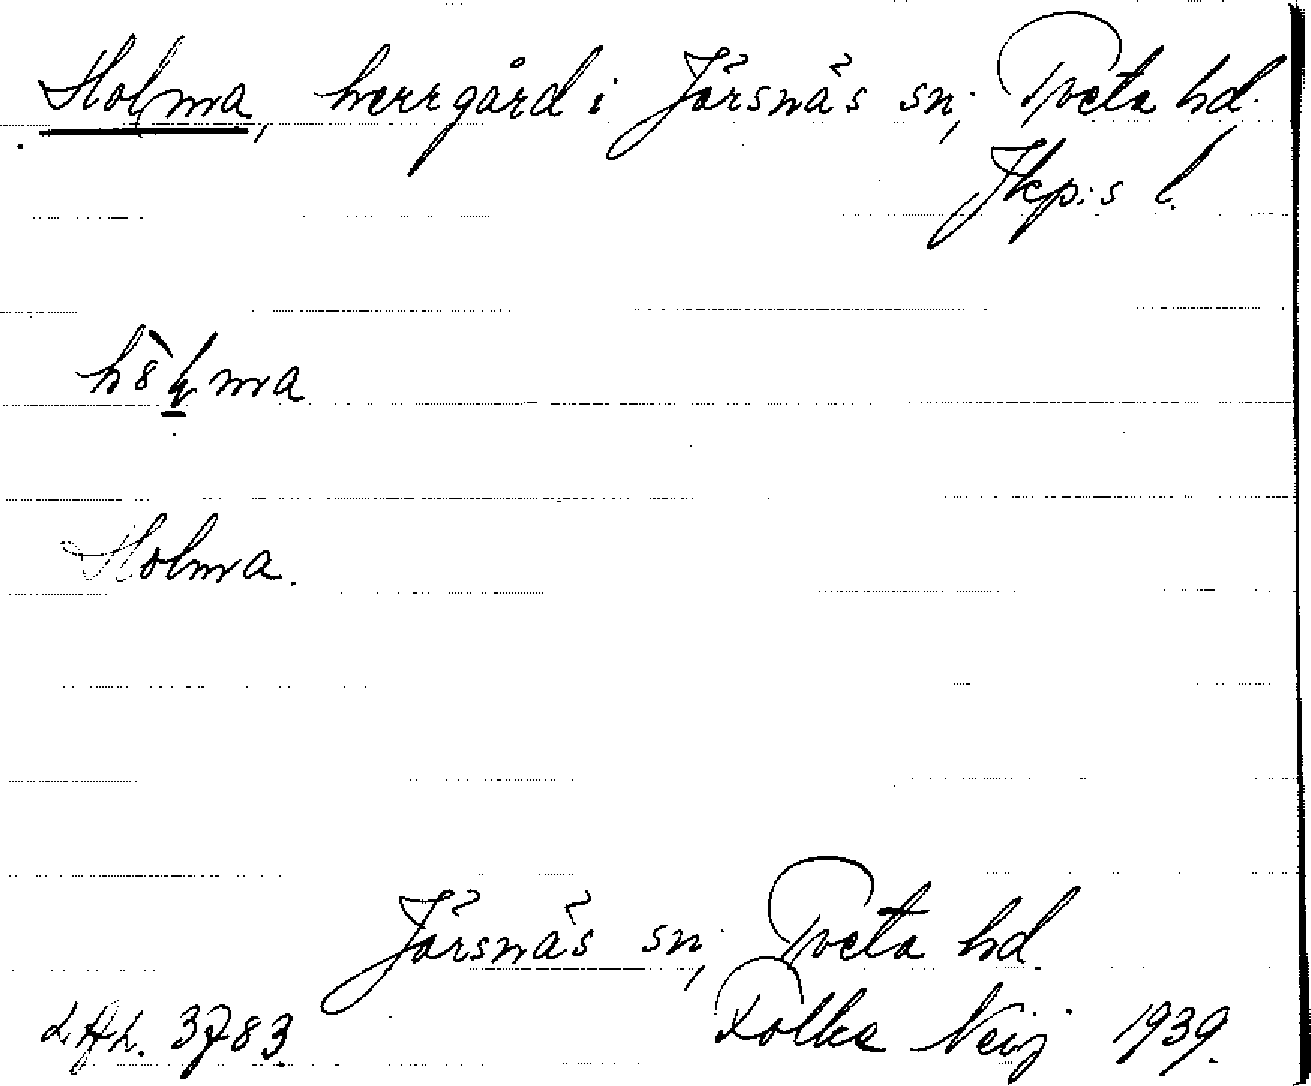 Holma, herrgård i Järsnäs sn, Tveta hd.
Jkp:s l.
Holma.
Järsnäs sn, Tveta hd
3783. Folke Neij 1939.